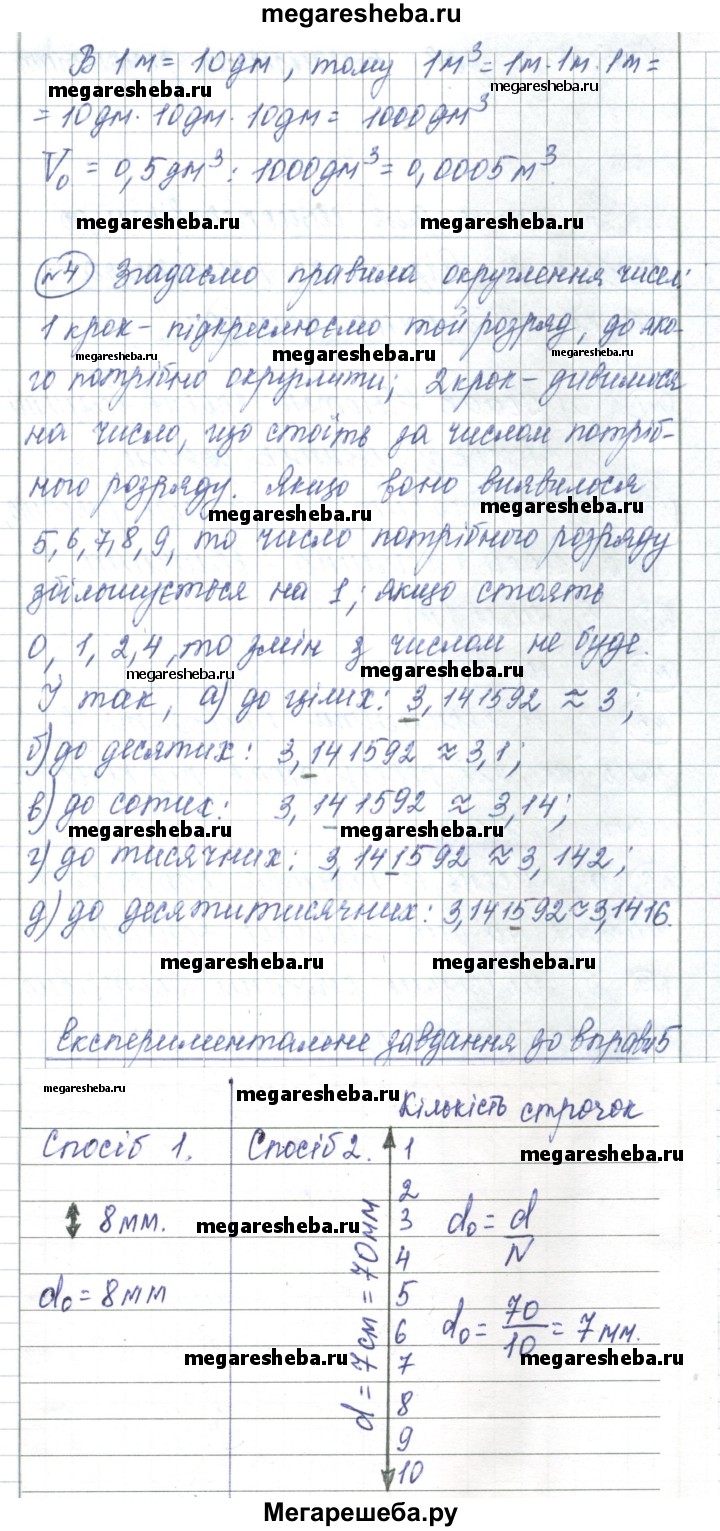 megaresheba.ru
В 1м = 10дм, тому 1м³ = 1м · 1м · 1м =
megaresheba.ru megaresheba.ru
= 10дм · 10дм · 10дм = 1000дм³
V₀ = 0,5дм³ : 1000дм³ = 0,0005м³
megaresheba.ru megaresheba.ru
№4 Згадаємо правила округлення чисел:
1 крок - підкреслюємо той розряд, до яко-
megaresheba.ru megaresheba.ru megaresheba.ru
го потрібно округлити; 2 крок - дивимося
на число, що стоїть за числом потріб-
ного розряду. Якщо воно виявилося
megaresheba.ru megaresheba.ru
5, 6, 7, 8, 9, то число потрібного розряду
збільшується на 1; якщо стоять
0, 1, 2, 4, то змін з числом не буде.
megaresheba.ru megaresheba.ru
І так, а) до цілих: 3,141592 ≈ 3;
б) до десятих: 3,141592 ≈ 3,1;
в) до сотих: 3,141592 ≈ 3,14;
megaresheba.ru megaresheba.ru
г) до тисячних: 3,141592 ≈ 3,142;
д) до десятитисячних: 3,141592 ≈ 3,1416.
megaresheba.ru megaresheba.ru
Експериментальне завдання до вправи 5
megaresheba.ru megaresheba.ru
Кількість строчок
Спосіб 1. Спосіб 2. 1
megaresheba.ru
2
8 мм. megaresheba.ru 3 d₀ = d/N
4
d₀ = 8 мм 5
d = 7 см = 70 мм
6 d₀ = 70/10 = 7 мм.
megaresheba.ru 7 megaresheba.ru
8
9
10
Мегарешеба.ру